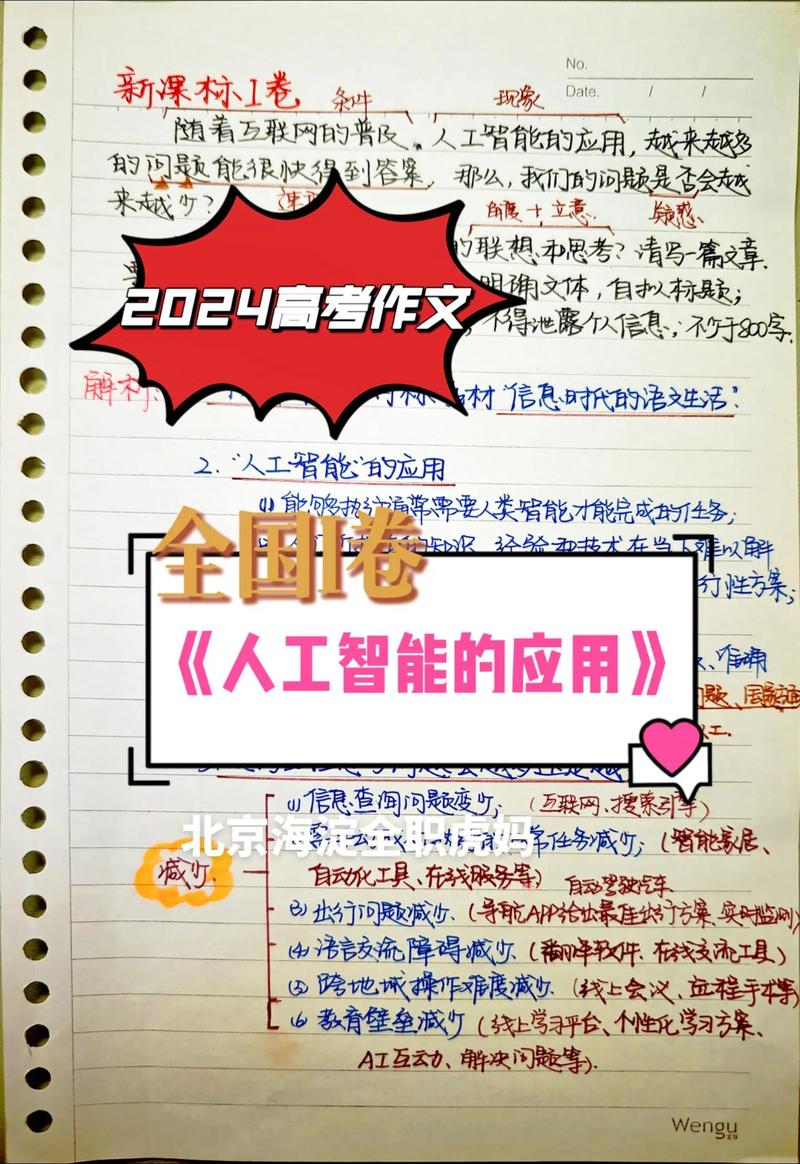 No.
Date. / /
新课标I卷
条件
现象
随着互联网的普及、人工智能的应用，越来越多
的问题能很快得到答案。那么，我们的问题是否会越
来越少？
角度+立意
疑惑
的联想和思考？请写一篇文章。
明确文体，自拟标题；
不得泄露个人信息；不少于800字。
2024高考作文
解材：
材“信息时代的语文生活”.
2.“人工智能”的应用
(1)能够执行通常需要人类智能才能完成的任务；
知识、经验和技术在当下难以解
行性方案；
全国I卷
《人工智能的应用》
、准确
(1)信息查询问题变少；（互联网、搜索引擎）
北京海淀全职虎妈
常任务减少；（智能家居、
自动化工具、在线服务等）自动驾驶汽车
减少
(3)出行问题减少.（导航APP给出最佳出行方案、实时监测）
(4)语言交流障碍减少.（翻译软件、在线交流工具）
(5)跨地域操作难度减少.（线上会议、远程手术等）
(6)教育壁垒减少（线上学习平台、个性化学习方案、
AI互动、解决问题等）.
Wengu